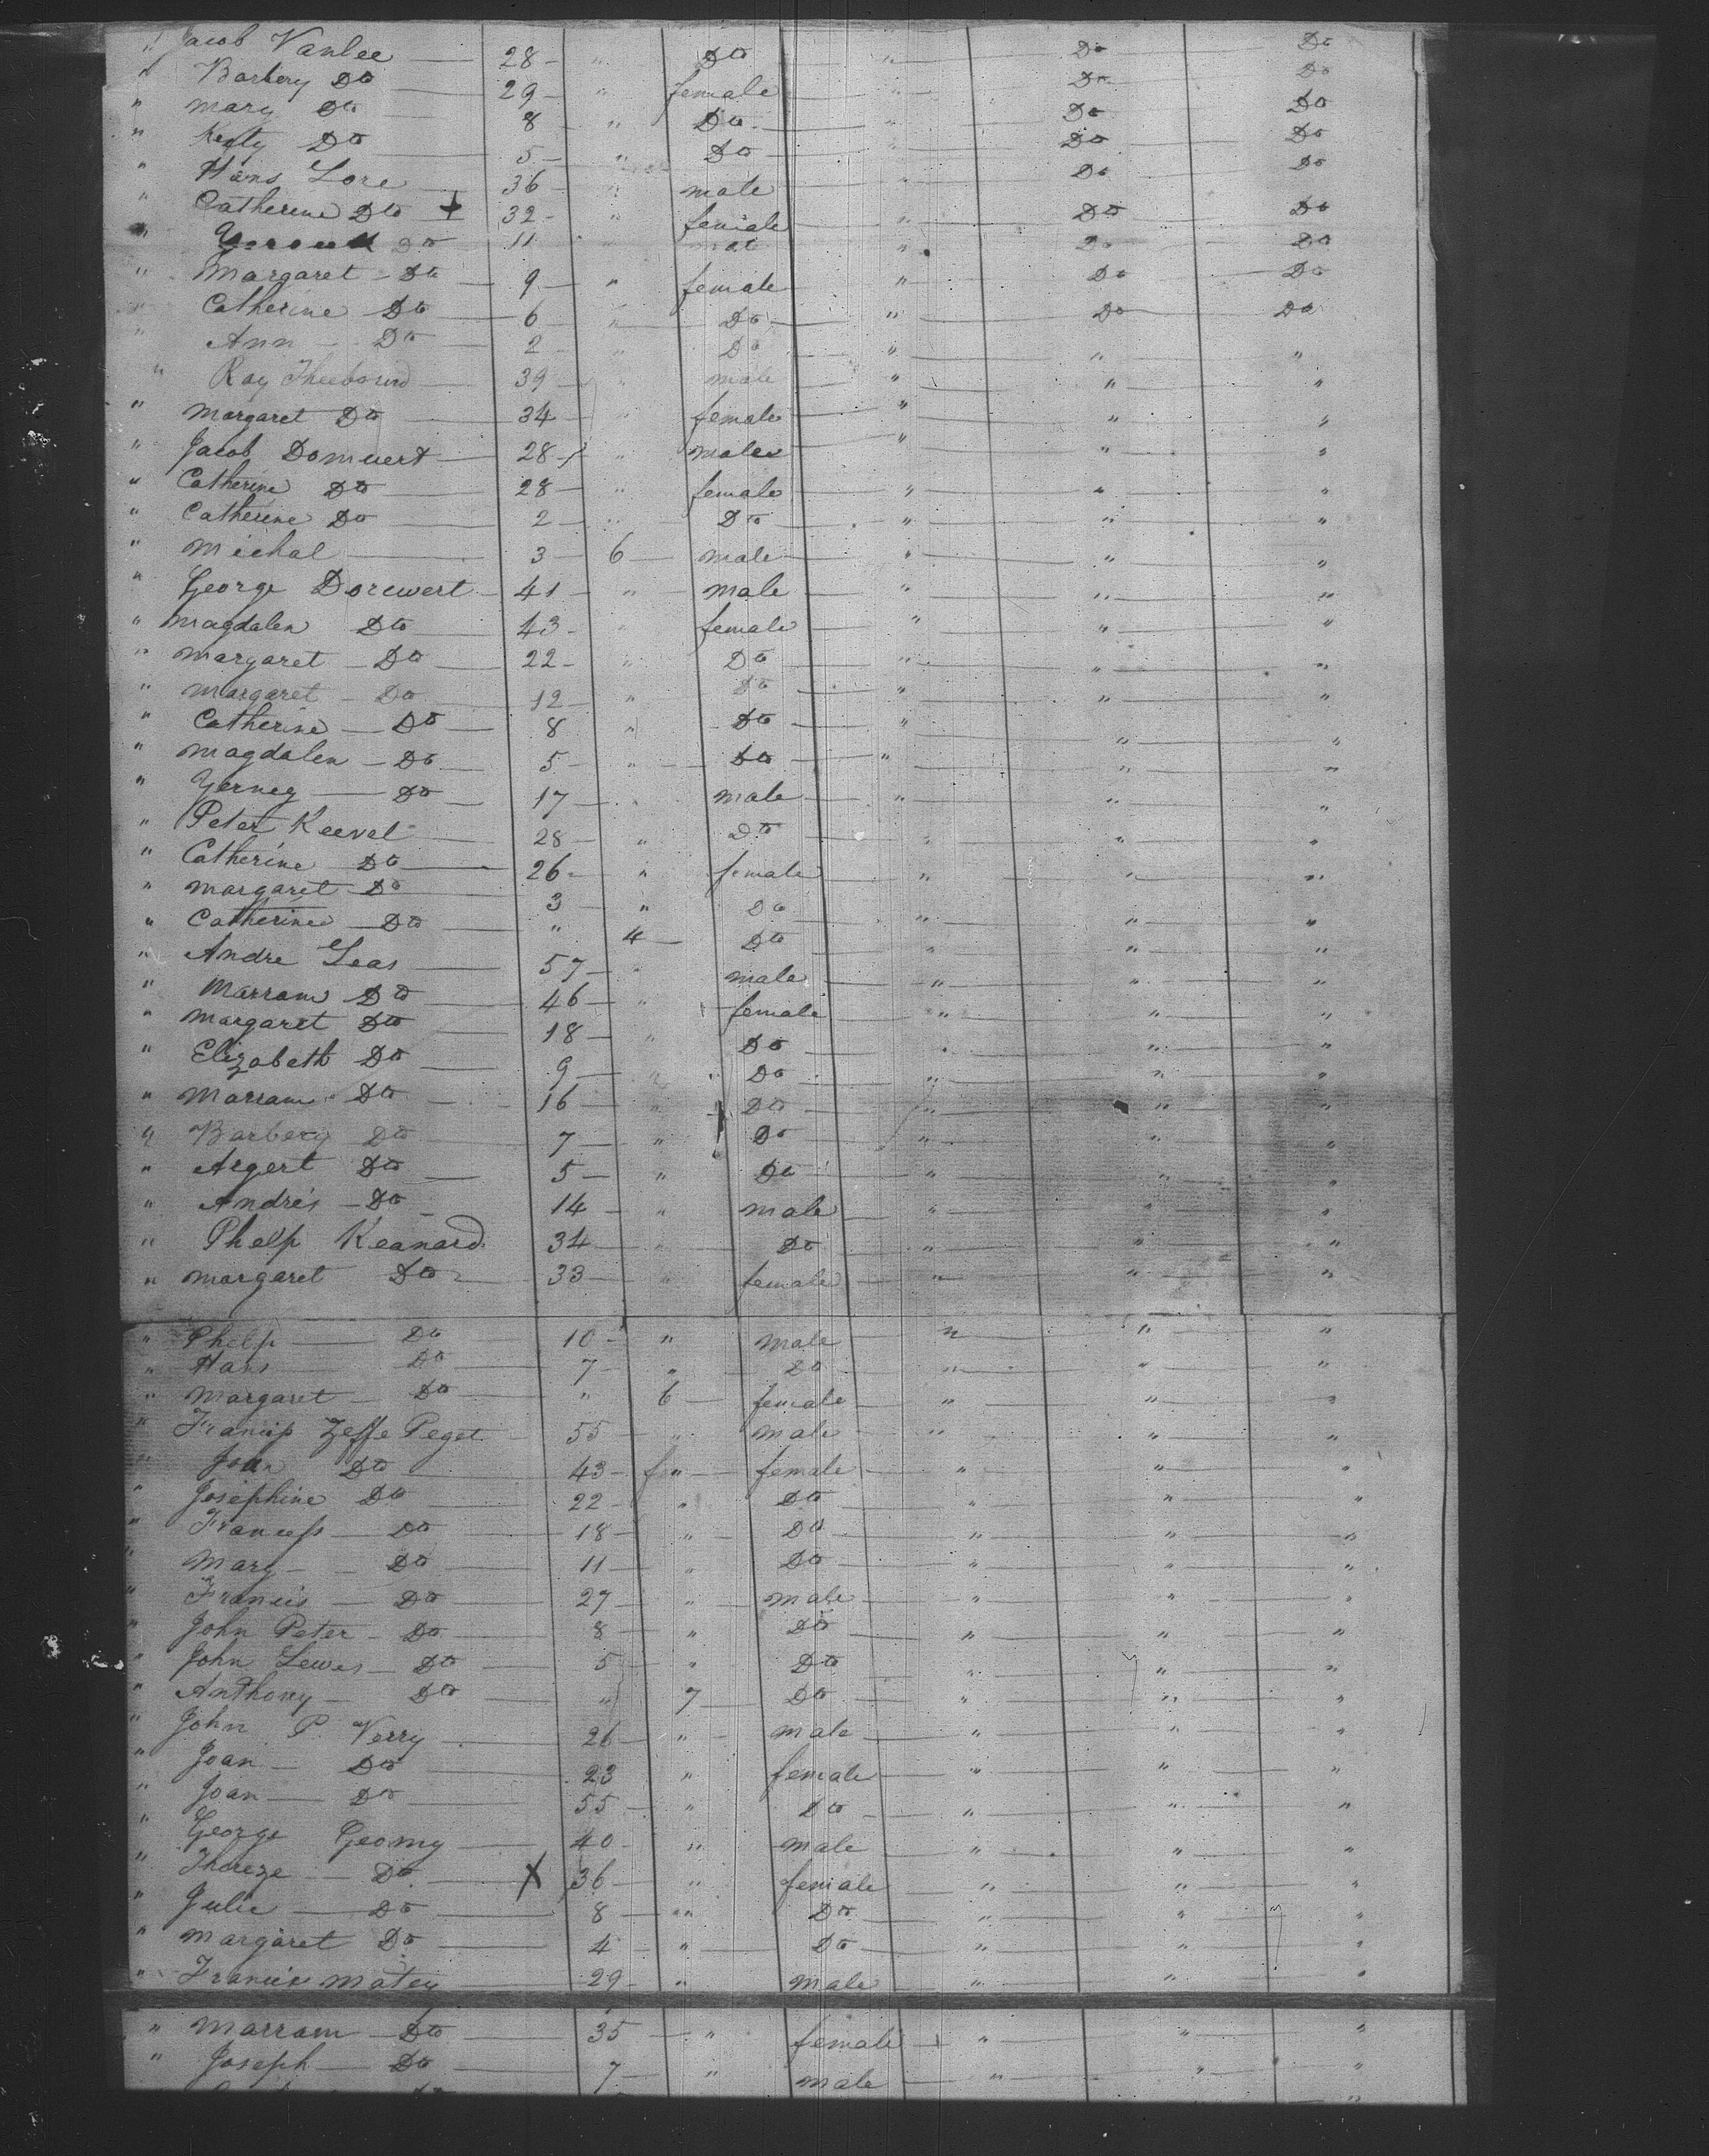 " Jacob Vanlee — 28 — " Do " Do Do
" Barbery Do — 29 — " female " Do Do
" Mary Do — 8 — " Do " Do Do
" Do — 5 — " Do " Do Do
" Hans Lore — 36 — " male " Do Do
" Catherine Do + 32 — " female " Do Do
" Do 11 " " Do Do
" Margaret — Do — 9 — " female " Do Do
" Catherine Do — 6 — " Do " Do Do
" Ann — Do — 2 — " Do " " "
" Ray Theebound — 39 — " male " " "
" Margaret Do — 34 — " female " " "
" Jacob Domuert — 28 — " males " " "
" Catherine Do — 28 — " female " " "
" Catherine Do — 2 — " Do " " "
" Michal — 3 — 6 — male " " "
" George Dorewert — 41 — " male " " "
" Magdalen Do — 43 — " female " " "
" Margaret — Do — 22 — " Do " " "
" Margaret — Do — 12 — " Do " " "
" Catherine — Do — 8 " Do " " "
" Magdalen — Do — 5 — " Do " " "
" Yerney — Do — 17 — " male " " "
" Peter Keevel — 28 — " Do " " "
" Catherine Do — 26 — " female " " "
" Margaret — Do — 3 " Do " " "
" Catherine — Do — " 4 — Do " " "
" Andre Leas — 57 — " male " " "
" Marram Do — 46 — " female " " "
" Margaret Do — 18 — " Do " " "
" Elizabeth Do — 9 — " Do " " "
" Marram Do — 16 — " Do " " "
" Barbery Do — 7 — " Do " " "
" Argert Do — 5 — " Do " " "
" Andres — Do — 14 — " male " " "
" Phelp Keanard 34 — " Do " " "
" Margaret Do — 33 — " female " " "
" Phelp — Do 10 — " male " " "
" Hans — Do 7 — " Do " " "
" Margaret — Do — " 6 — female " " "
" Francis Zeffe Peget 55 — " male " " "
" Joan Do — 43 — " female " " "
" Josephine Do — 22 — " Do " " "
" Francess — Do — 18 — " Do " " "
" Mary — Do — 11 — " Do " " "
" Francis — Do — 27 — " male " " "
" John Peter — Do — 8 — " Do " " "
" John Lewes — Do — 5 — " Do " " "
" Anthony — Do — " 7 — Do " " "
" John P. Verry — 26 — " male " " "
" Joan — Do — 23 " female " " "
" Joan — Do — 55 — " Do " " "
" George Geomy — 40 — " male " " "
" Thereze — Do — X 36 — " female " " "
" Julie — Do — 8 — " Do " " "
" Margaret Do — 4 — " Do " " "
" Francis Matey — 29 — " male " " "
" Marram — Do — 35 — " female " " "
" Joseph — Do — 7 — " male " " "